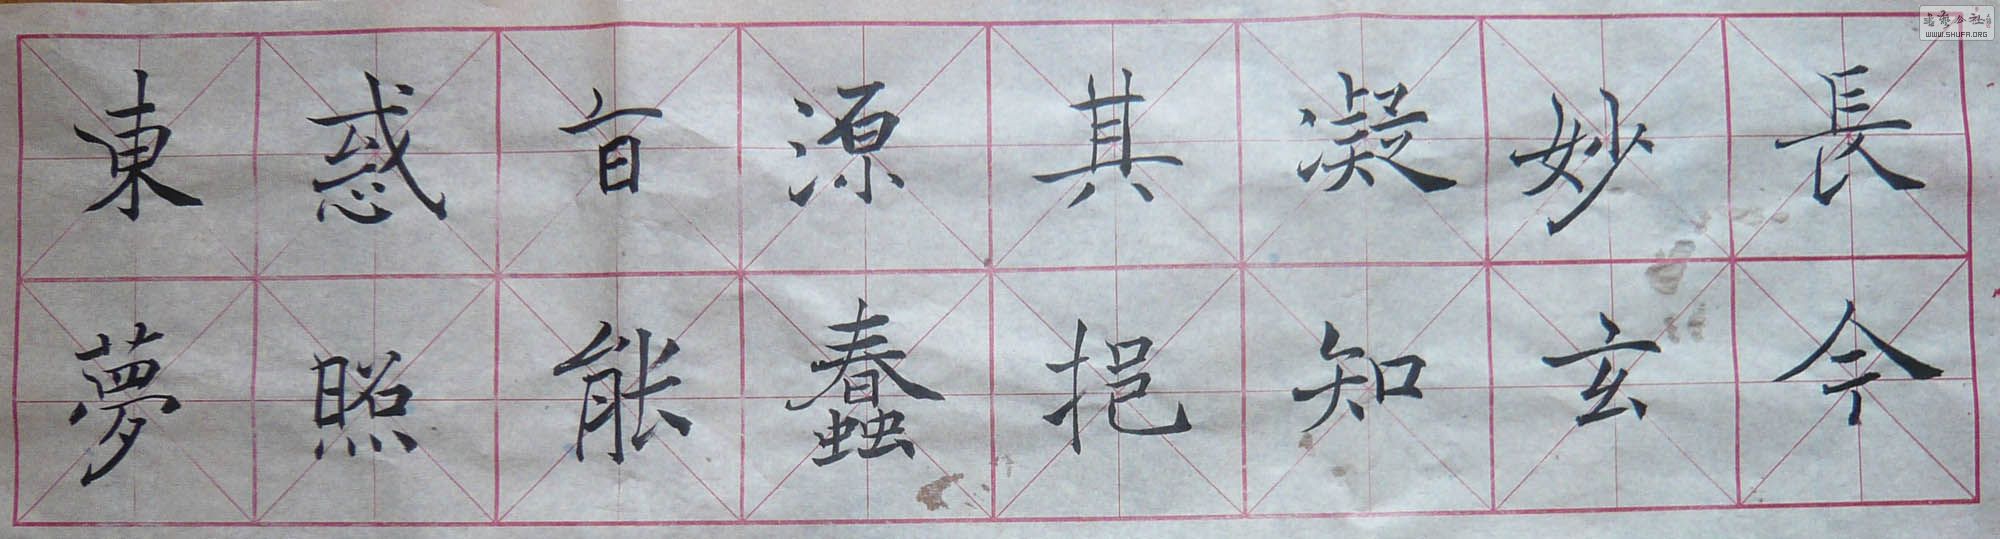 長今
妙玄
凝知
其挹
源蠢
旨能
惑照
東夢
书艺公社
WWW.SHUFA.ORG